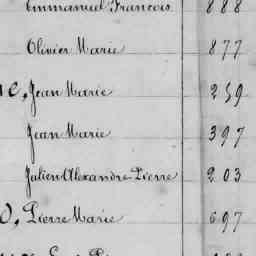 Emmanuel Francois 888
Olivier Marie 877
c, Jean Marie 259
Jean Marie 397
Julien Alexandre Pierre 203
O, Pierre Marie 697